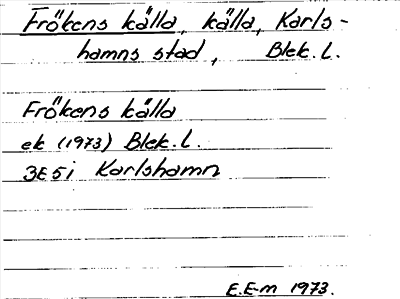 Frökens källa, källa, Karls-
hamns stad, Blek. l.
Frökens källa
ek (1973) Blek. l.
3E 5i Karlshamn
E.E-m 1973.